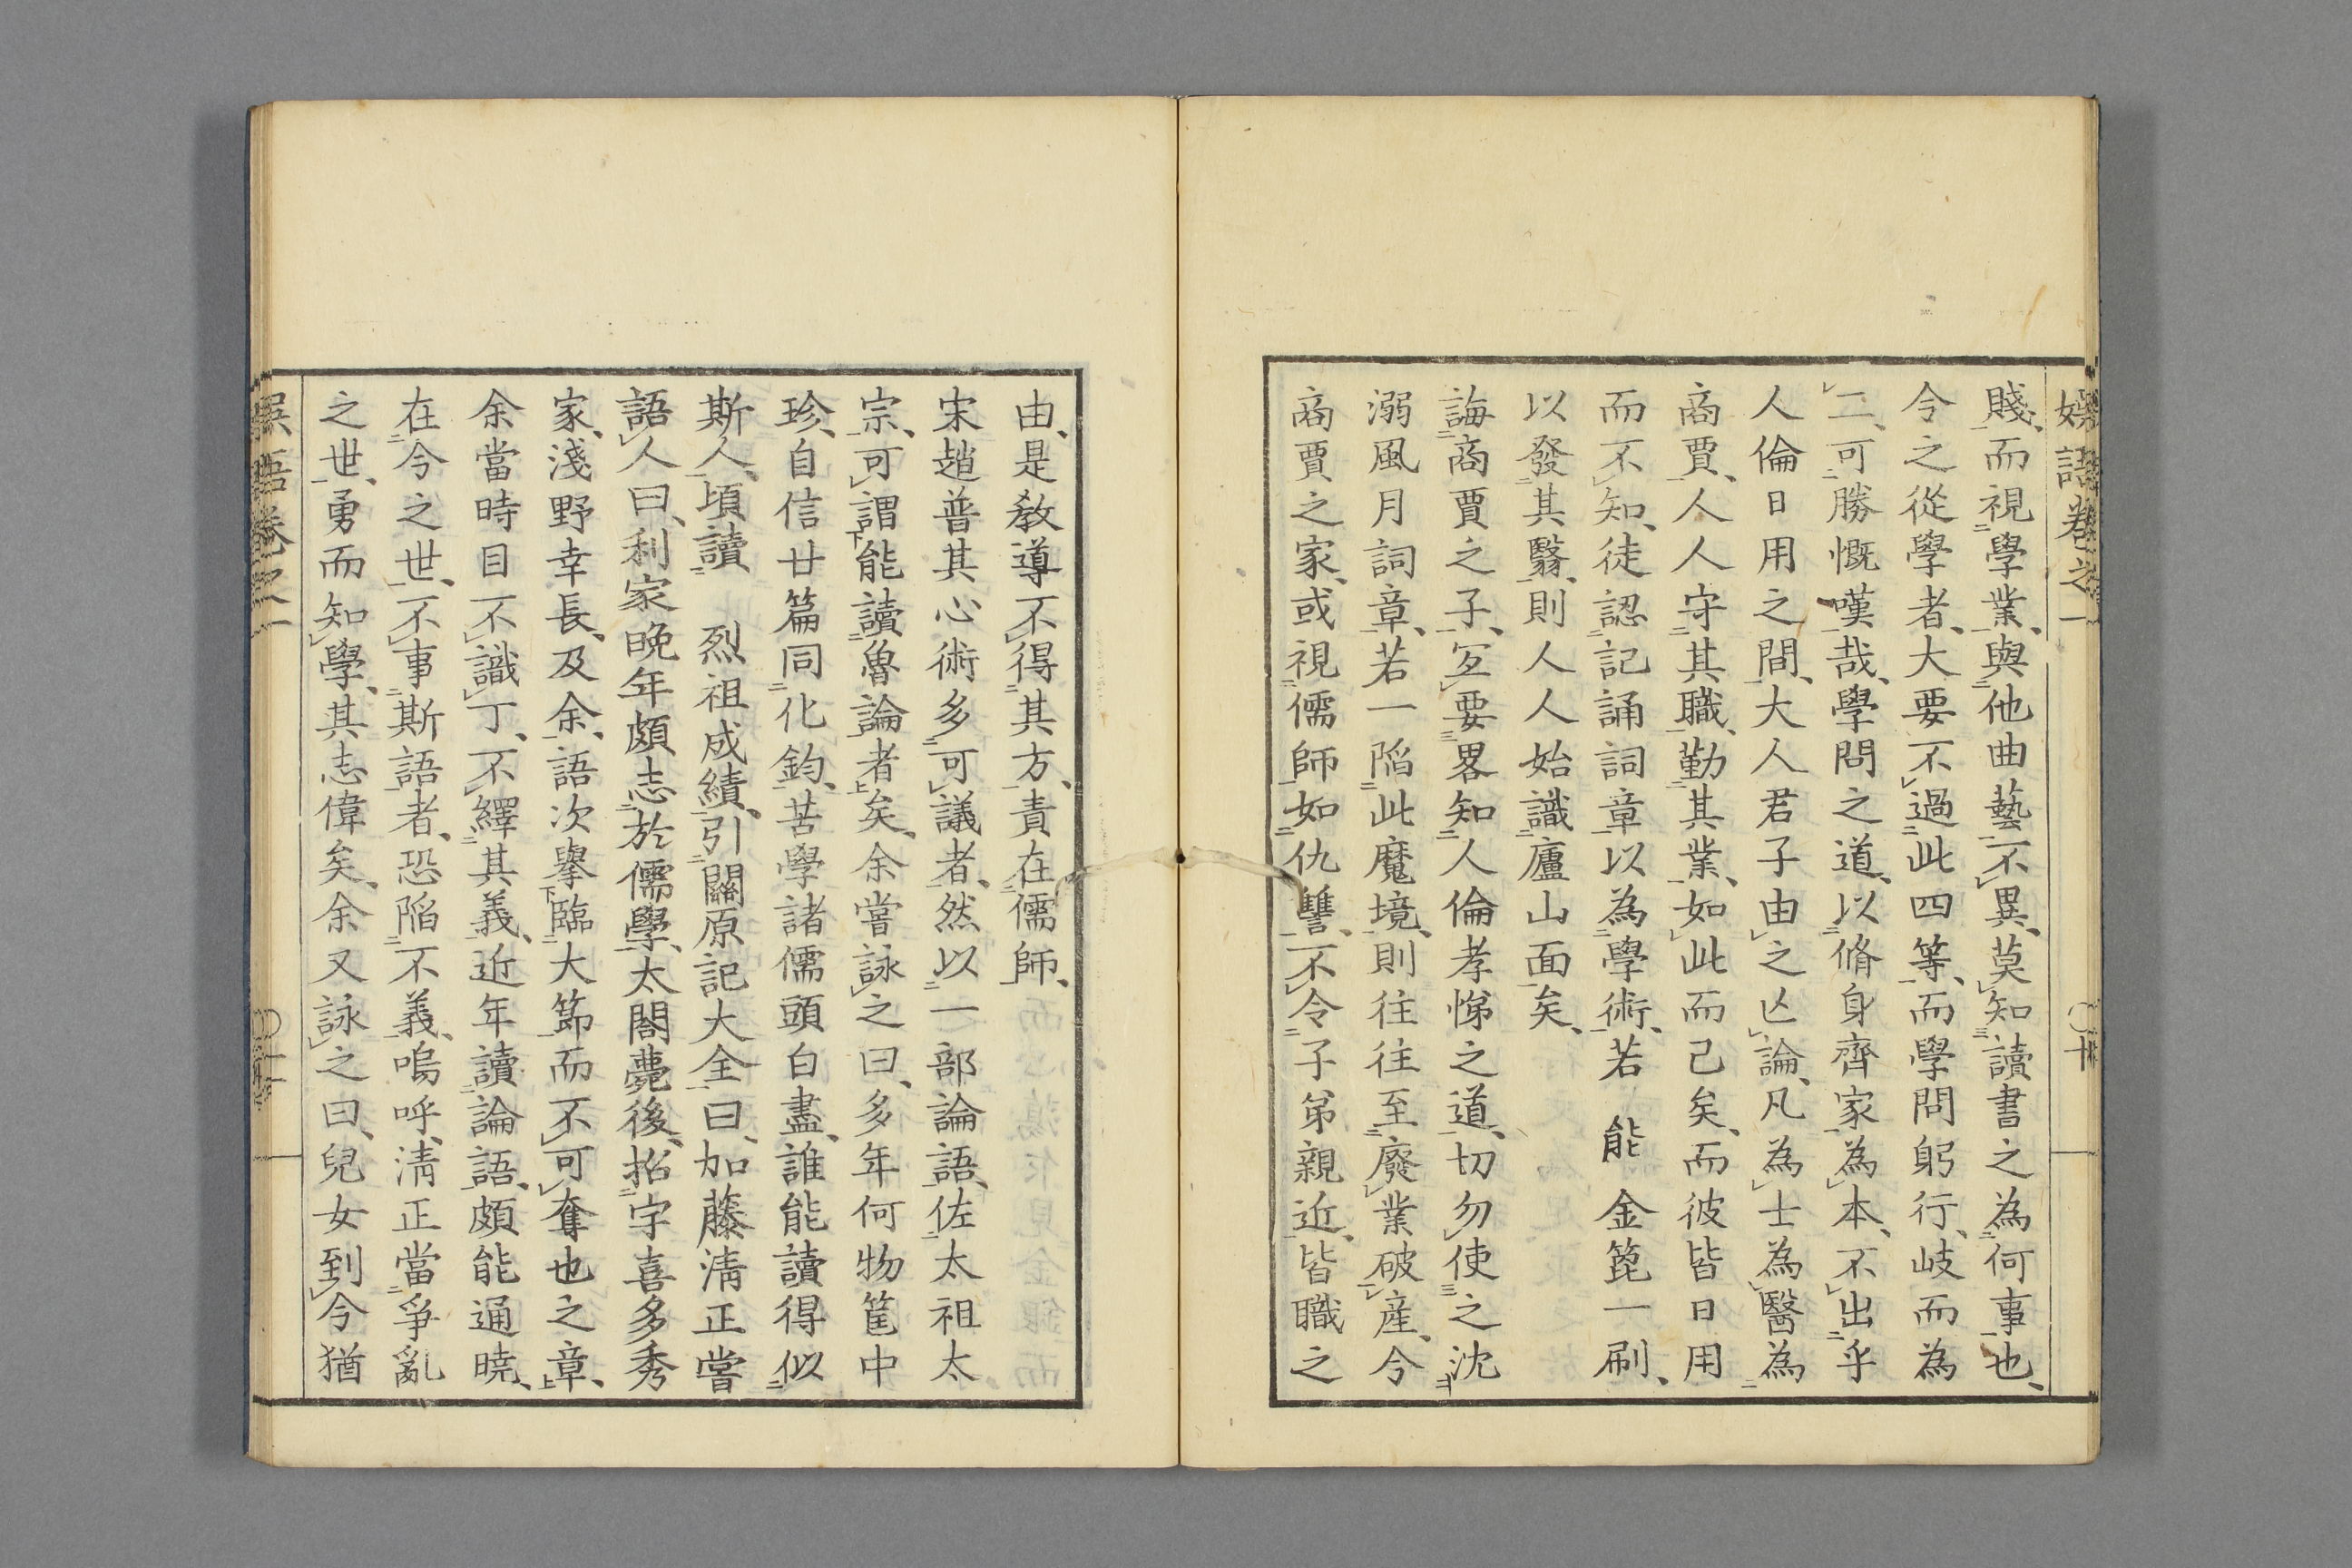 娯語卷之一
〇十
賤、而視學業、與他曲藝不異、莫知讀書之為何事也、
今之從學者、大要不過此四等、而學問躬行、岐而為
二、可勝慨嘆哉、學問之道、以脩身齊家為本、不出乎
人倫日用之間、大人君子由之亾論、凡為士為醫為
商賈、人人守其職、勤其業、如此而己矣、而彼皆日用
而不知、徒認記誦詞章以為學術、若能金篦一刷、
以發其翳、則人人始識廬山面矣、
誨商賈之子、宜要畧知人倫孝悌之道、切勿使之沈
溺風月詞章、若一陷此魔境、則往往至廢業破産、今
商賈之家、或視儒師如仇讐、不令子弟親近、皆職之
由、是教導不得其方、責在儒師、
宋趙普其心術多可議者、然以一部論語、佐太祖太
宗、可謂能讀魯論者矣、余嘗詠之曰、多年何物篋中
珍、自信廿篇同化鈞、苦學諸儒頭白盡、誰能讀得似
斯人、頃讀　烈祖成績、引關原記大全曰、加藤淸正嘗
語人曰、利家晩年頗志於儒學、太閤薨後、招宇喜多秀
家、淺野幸長、及余、語次擧臨大節而不可奪也之章、
余當時目不識丁、不繹其義、近年讀論語、頗能通曉、
在今之世、不事斯語者、恐陷不義、嗚呼、淸正當爭亂
之世、勇而知學、其志偉矣、余又詠之曰、兒女到今猶
娯語卷之一